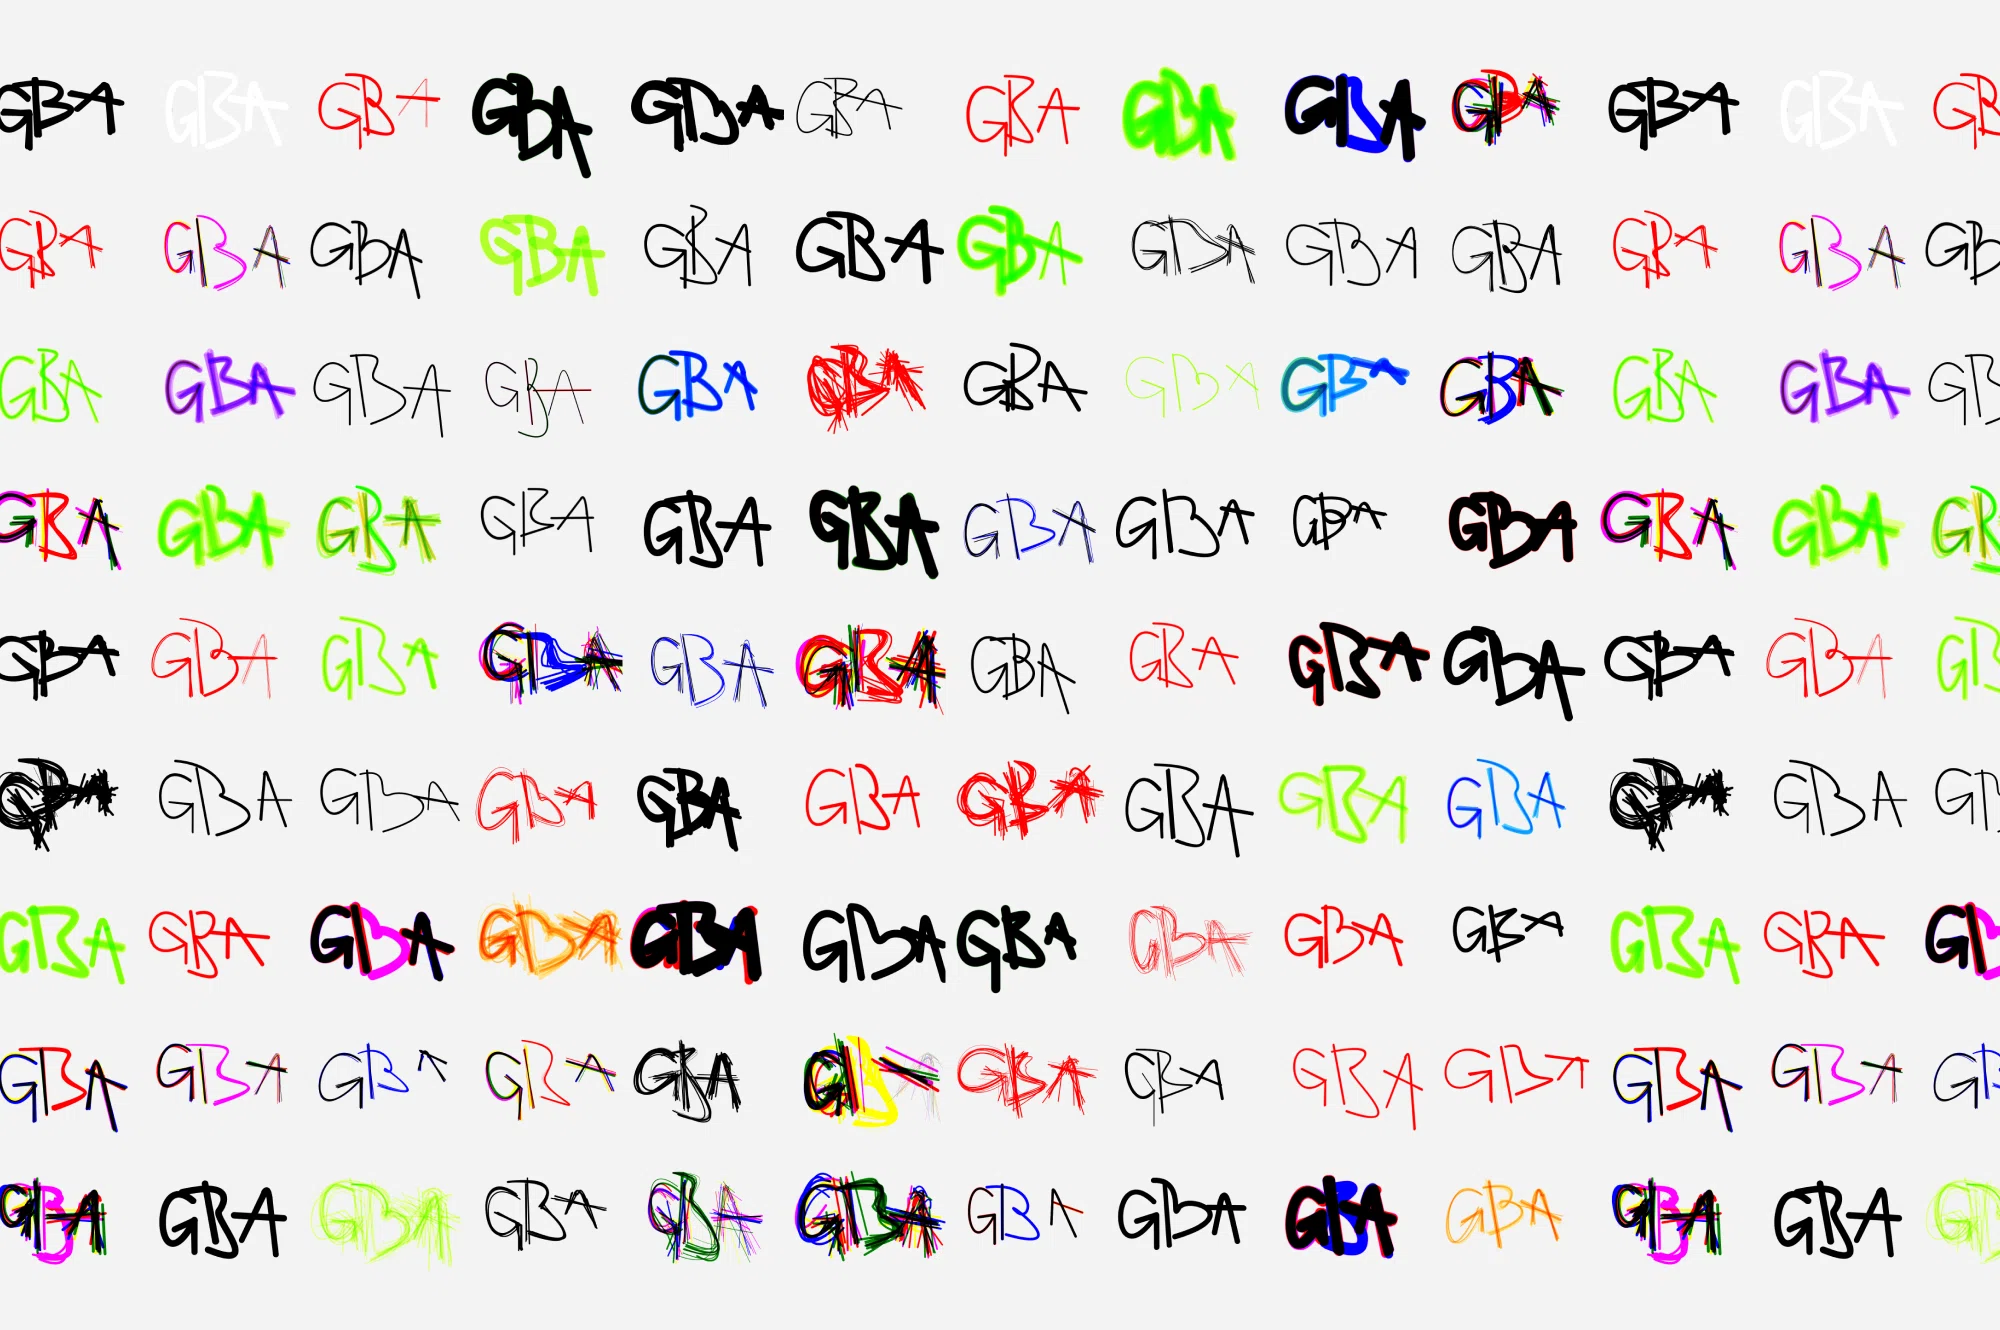 GBA GBA GBA GBA GBA GBA GBA GBA GBA GBA GBA GBA
GBA GBA GBA GBA GBA GBA GBA GBA GBA GBA GBA GBA
GBA GBA GBA GBA GBA GBA GBA GBA GBA GBA GBA GBA
GBA GBA GBA GBA GBA GBA GBA GBA GBA GBA GBA GBA
GBA GBA GBA GBA GBA GBA GBA GBA GBA GBA GBA GBA
GBA GBA GBA GBA GBA GBA GBA GBA GBA GBA GBA GBA
GBA GBA GBA GBA GBA GBA GBA GBA GBA GBA GBA GBA
GBA GBA GBA GBA GBA GBA GBA GBA GBA GBA GBA GBA
GBA GBA GBA GBA GBA GBA GBA GBA GBA GBA GBA GBA